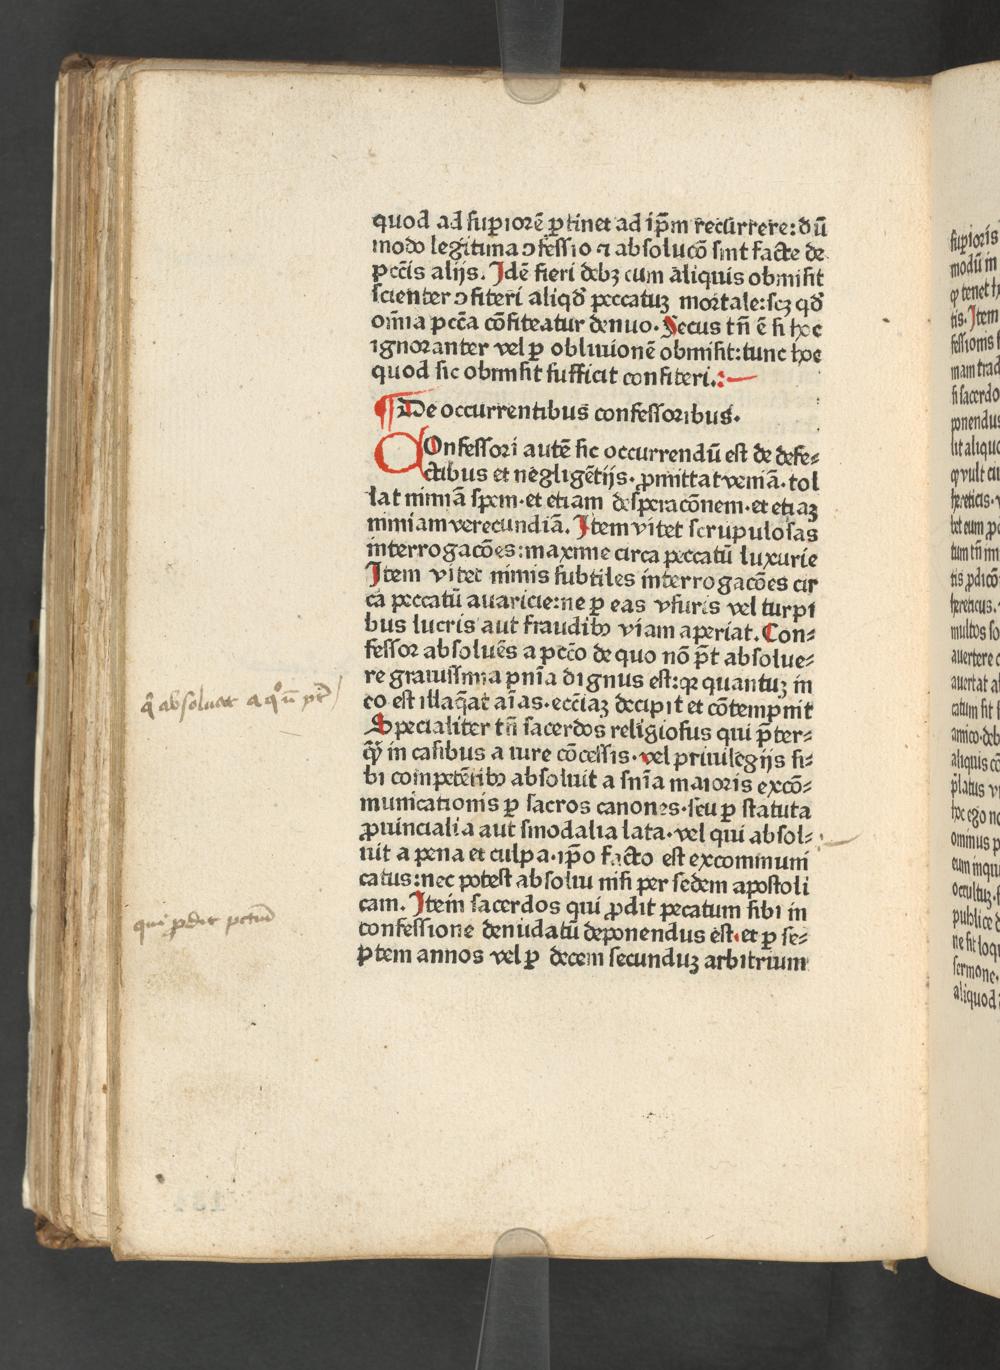 quod ad supiorē ꝑtinet ad ip̄m recurrere: dū
modo legitima ꝯfessio ⁊ absolucō sint facte de
pccīs alijs. Idē fieri debꝫ cum aliquis obmisit
scienter ꝯfiteri aliqd̄ peccatuꝫ mortale: scꝫ qd̄
om̄ia pccā cōfiteatur denuo. Secus tn̄ ē si hoc
ignoranter vel ꝑ obliuionē obmisit: tunc hoc
quod sic obmisit sufficit confiteri.
¶ De occurrentibus confessoribus.
COnfessori autē sic occurrendū est de defe-
ctibus et negligētijs. ꝓmittat veniā. tol
lat nimiā spem. et etiam desperacōnem. et etiaꝫ
nimiam verecundiā. Item vitet scrupulosas
interrogacōes: maxime circa peccatū luxurie
Item vitet nimis subtiles interrogacōes cir
ca peccatū auaricie: ne ꝑ eas vsuris vel turpi
bus lucris aut fraudibꝰ viam aperiat. Con-
fessor absoluēs a pccō de quo nō pt̄ absolue-
re grauissima pnīa dignus est: qꝛ quantuꝫ in
eo est illaq̄at aīas. ecciāꝫ decipit et cōtempnit
Specialiter tn̄ sacerdos religiosus qui p̄ter-
qꝫ̄ in casibus a iure cōcessis. vel priuilegijs si-
bi competētibꝰ absoluit a snīa maioris excō-
municationis ꝑ sacros canones. seu ꝑ statuta
ꝓuincialia aut sinodalia lata. vel qui absol-
uit a pena et culpa. ip̄o facto est excommuni
catus: nec potest absolui nisi per sedem apostoli
cam. Item sacerdos qui ꝓdit pecatum sibi in
confessione denudatū deponendus est. et ꝑ se-
ptem annos vel ꝑ decem secunduꝫ arbitrium
q̄ absoluat a qͦ nō pt̄
qui ꝓdit pctm̄
supioris
modū in
tis. Item
fessionis
mam trad
si sacerdo
ponendus
lit aliquo
hereticis.
hereticus.
multos so
auertere
auertat
catum sit
amico. deb
aliquis cō
p̄latus
hoc ego no
ominus
eum inqui
occultuꝫ.
publice
ne sit loq
sermone.
aliquod